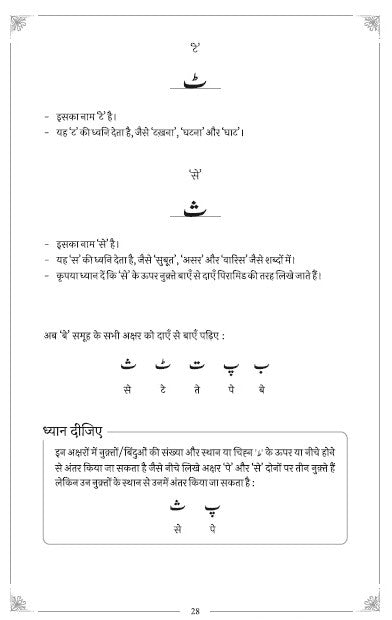 'टे'
ٹ
- इसका नाम 'टे' है।
- यह 'ट' की ध्वनि देता है, जैसे 'टख़ना', 'घटना' और 'घाट'।
'से'
ث
- इसका नाम 'से' है।
- यह 'स' की ध्वनि देता है, जैसे 'सुबूत', 'असर' और 'वारिस' जैसे शब्दों में।
- कृपया ध्यान दें कि 'से' के ऊपर नुक़्ते बाएँ से दाएँ पिरामिड की तरह लिखे जाते हैं।
अब 'बे' समूह के सभी अक्षर को दाएँ से बाएँ पढ़िए :
ب پ ت ٹ ث
से टे ते पे बे
ध्यान दीजिए
इन अक्षरों में नुक़्तों/बिंदुओं की संख्या और स्थान या चिह्न 'ط' के ऊपर या नीचे होने
से अंतर किया जा सकता है जैसे नीचे लिखे अक्षर 'पे' और 'से' दोनों पर तीन नुक़्ते हैं
लेकिन उन नुक़्तों के स्थान से उनमें अंतर किया जा सकता है :
پ ث
से पे
28